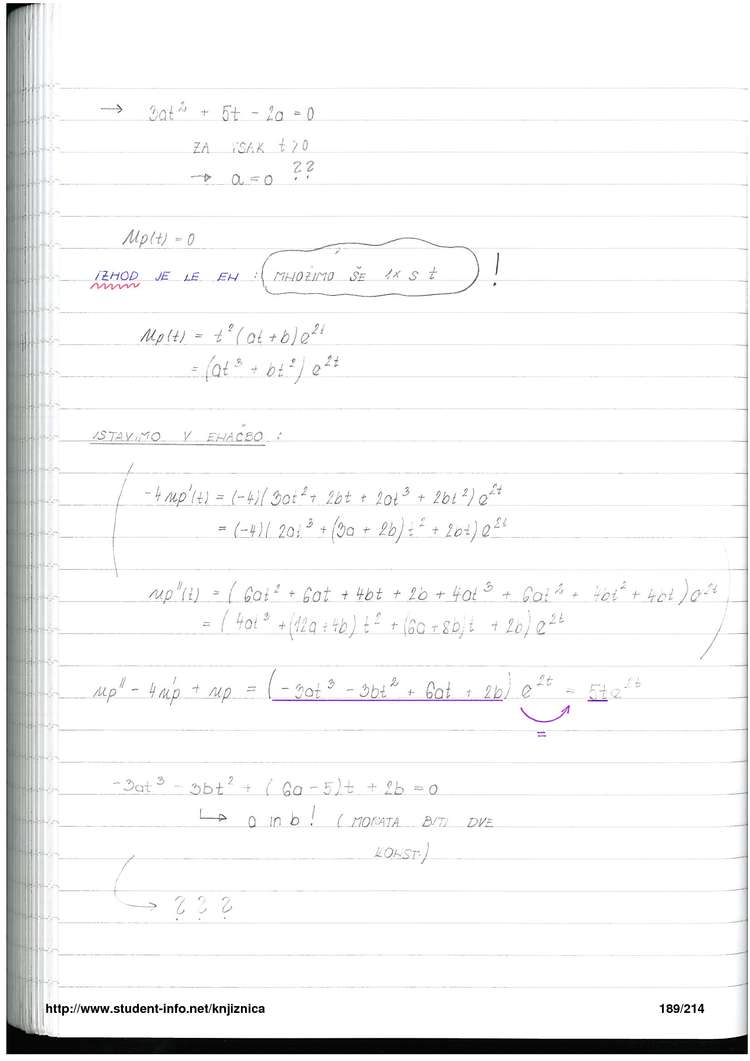 → 3at² + 5t - 2a = 0
ZA VSAK t > 0
→ a = 0 ??
up(t) = 0
IZHOD JE LE EN : MNOŽIMO ŠE 1x S t !
up(t) = t² (at + b) e^2t
= (at³ + bt²) e^2t
VSTAVIMO V ENAČBO :
-4up'(t) = (-4)(3at² + 2bt + 2at³ + 2bt²) e^2t
= (-4)(2at³ + (3a + 2b)t² + 2bt) e^2t
up''(t) = (6at² + 6at + 4bt + 2b + 4at³ + 6at² + 4bt² + 4bt) e^2t
= (4at³ + (12a + 4b)t² + (6a + 8b)t + 2b) e^2t
up'' - 4u'p + up = (-3at³ - 3bt² + 6at + 2b) e^2t = 5t e^2t
=
-3at³ - 3bt² + (6a - 5)t + 2b = 0
↳ a in b ! (MORATA BITI DVE
KONST.)
→ ? ? ?
http://www.student-info.net/knjiznica
189/214